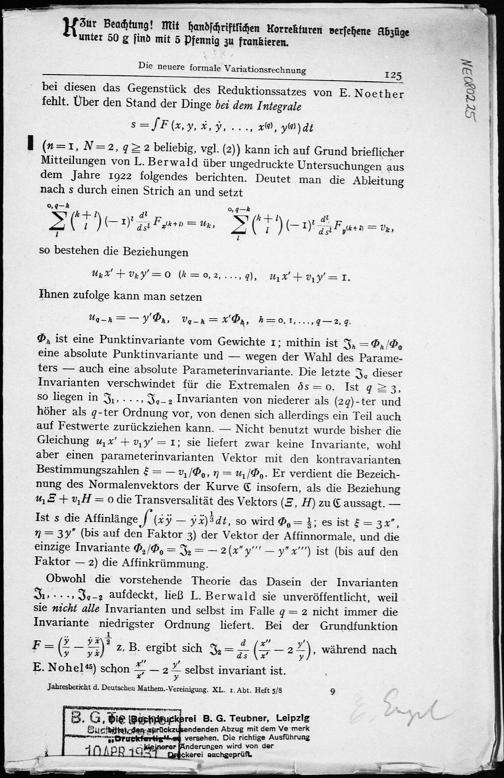 Zur Beachtung! Mit handschriftlichen Korrekturen versehene Abzüge
unter 50 g sind mit 5 Pfennig zu frankieren.
NEO80225
Die neuere formale Variationsrechnung 125
bei diesen das Gegenstück des Reduktionssatzes von E. Noether
fehlt. Über den Stand der Dinge bei dem Integrale
s = ∫F(x, y, ẋ, ẏ, ..., x^(q), y^(q)) dt
(n = 1, N = 2, q ≧ 2 beliebig, vgl. (2)) kann ich auf Grund brieflicher
Mitteilungen von L. Berwald über ungedruckte Untersuchungen aus
dem Jahre 1922 folgendes berichten. Deutet man die Ableitung
nach s durch einen Strich an und setzt
∑_l^{0, q−k} (k+l l)(−1)^l d^l/ds^l F_{x^(k+l)} = u_k, ∑_l^{0, q−k} (k+l l)(−1)^l d^l/ds^l F_{y^(k+l)} = v_k,
so bestehen die Beziehungen
u_k x' + v_k y' = 0 (k = 0, 2, ..., q), u_1 x' + v_1 y' = 1.
Ihnen zufolge kann man setzen
u_{q−h} = − y'Φ_h, v_{q−h} = x'Φ_h, h = 0, 1, ..., q − 2, q.
Φ_h ist eine Punktinvariante vom Gewichte 1; mithin ist ℑ_h = Φ_h/Φ_0
eine absolute Punktinvariante und — wegen der Wahl des Parame-
ters — auch eine absolute Parameterinvariante. Die letzte ℑ_q dieser
Invarianten verschwindet für die Extremalen δs = 0. Ist q ≧ 3,
so liegen in ℑ_1, ..., ℑ_{q−2} Invarianten von niederer als (2q)-ter und
höher als q-ter Ordnung vor, von denen sich allerdings ein Teil auch
auf Festwerte zurückziehen kann. — Nicht benutzt wurde bisher die
Gleichung u_1 x' + v_1 y' = 1; sie liefert zwar keine Invariante, wohl
aber einen parameterinvarianten Vektor mit den kontravarianten
Bestimmungszahlen ξ = − v_1/Φ_0, η = u_1/Φ_0. Er verdient die Bezeich-
nung des Normalenvektors der Kurve ℭ insofern, als die Beziehung
u_1 Ξ + v_1 H = 0 die Transversalität des Vektors (Ξ, H) zu ℭ aussagt. —
Ist s die Affinlänge ∫(ẋÿ − ẏẍ)^{1/3} dt, so wird Φ_0 = 1/3; es ist ξ = 3x'',
η = 3y'' (bis auf den Faktor 3) der Vektor der Affinnormale, und die
einzige Invariante Φ_2/Φ_0 = ℑ_2 = − 2(x''y''' − y''x''') ist (bis auf den
Faktor − 2) die Affinkrümmung.
Obwohl die vorstehende Theorie das Dasein der Invarianten
ℑ_1, ..., ℑ_{q−2} aufdeckt, ließ L. Berwald sie unveröffentlicht, weil
sie nicht alle Invarianten und selbst im Falle q = 2 nicht immer die
Invariante niedrigster Ordnung liefert. Bei der Grundfunktion
F = (ÿ/ẏ − ẏẍ/yẋ)^{1/2} z. B. ergibt sich ℑ_2 = d/ds (x''/x' − 2 y'/y), während nach
E. Nohel⁴⁵) schon x''/x' − 2 y'/y selbst invariant ist.
Jahresbericht d. Deutschen Mathem.-Vereinigung. XL. 1. Abt. Heft 5/8 9
B. G.
10 APR 1931
Die Buchdruckerei B. G. Teubner, Leipzig
bittet den zurückzusendenden Abzug mit dem Vermerk
„Druckfertig" zu versehen. Die richtige Ausführung
kleinerer Änderungen wird von der
Druckerei nachgeprüft.